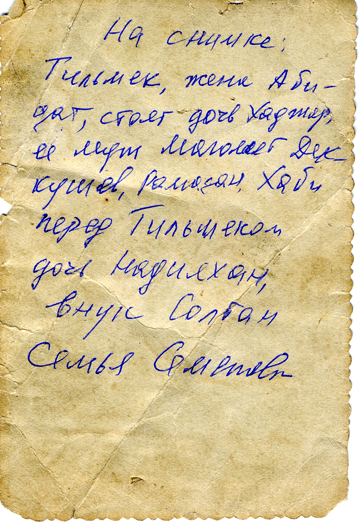 На снимке:
Тильмек, жена Аби-
дат, стоят дочь Хаджар,
ее муж Магомет Дек
кушев, Рамазан Хаби
перед Тильмеком
дочь Надилхан,
внук Солтан
Семья